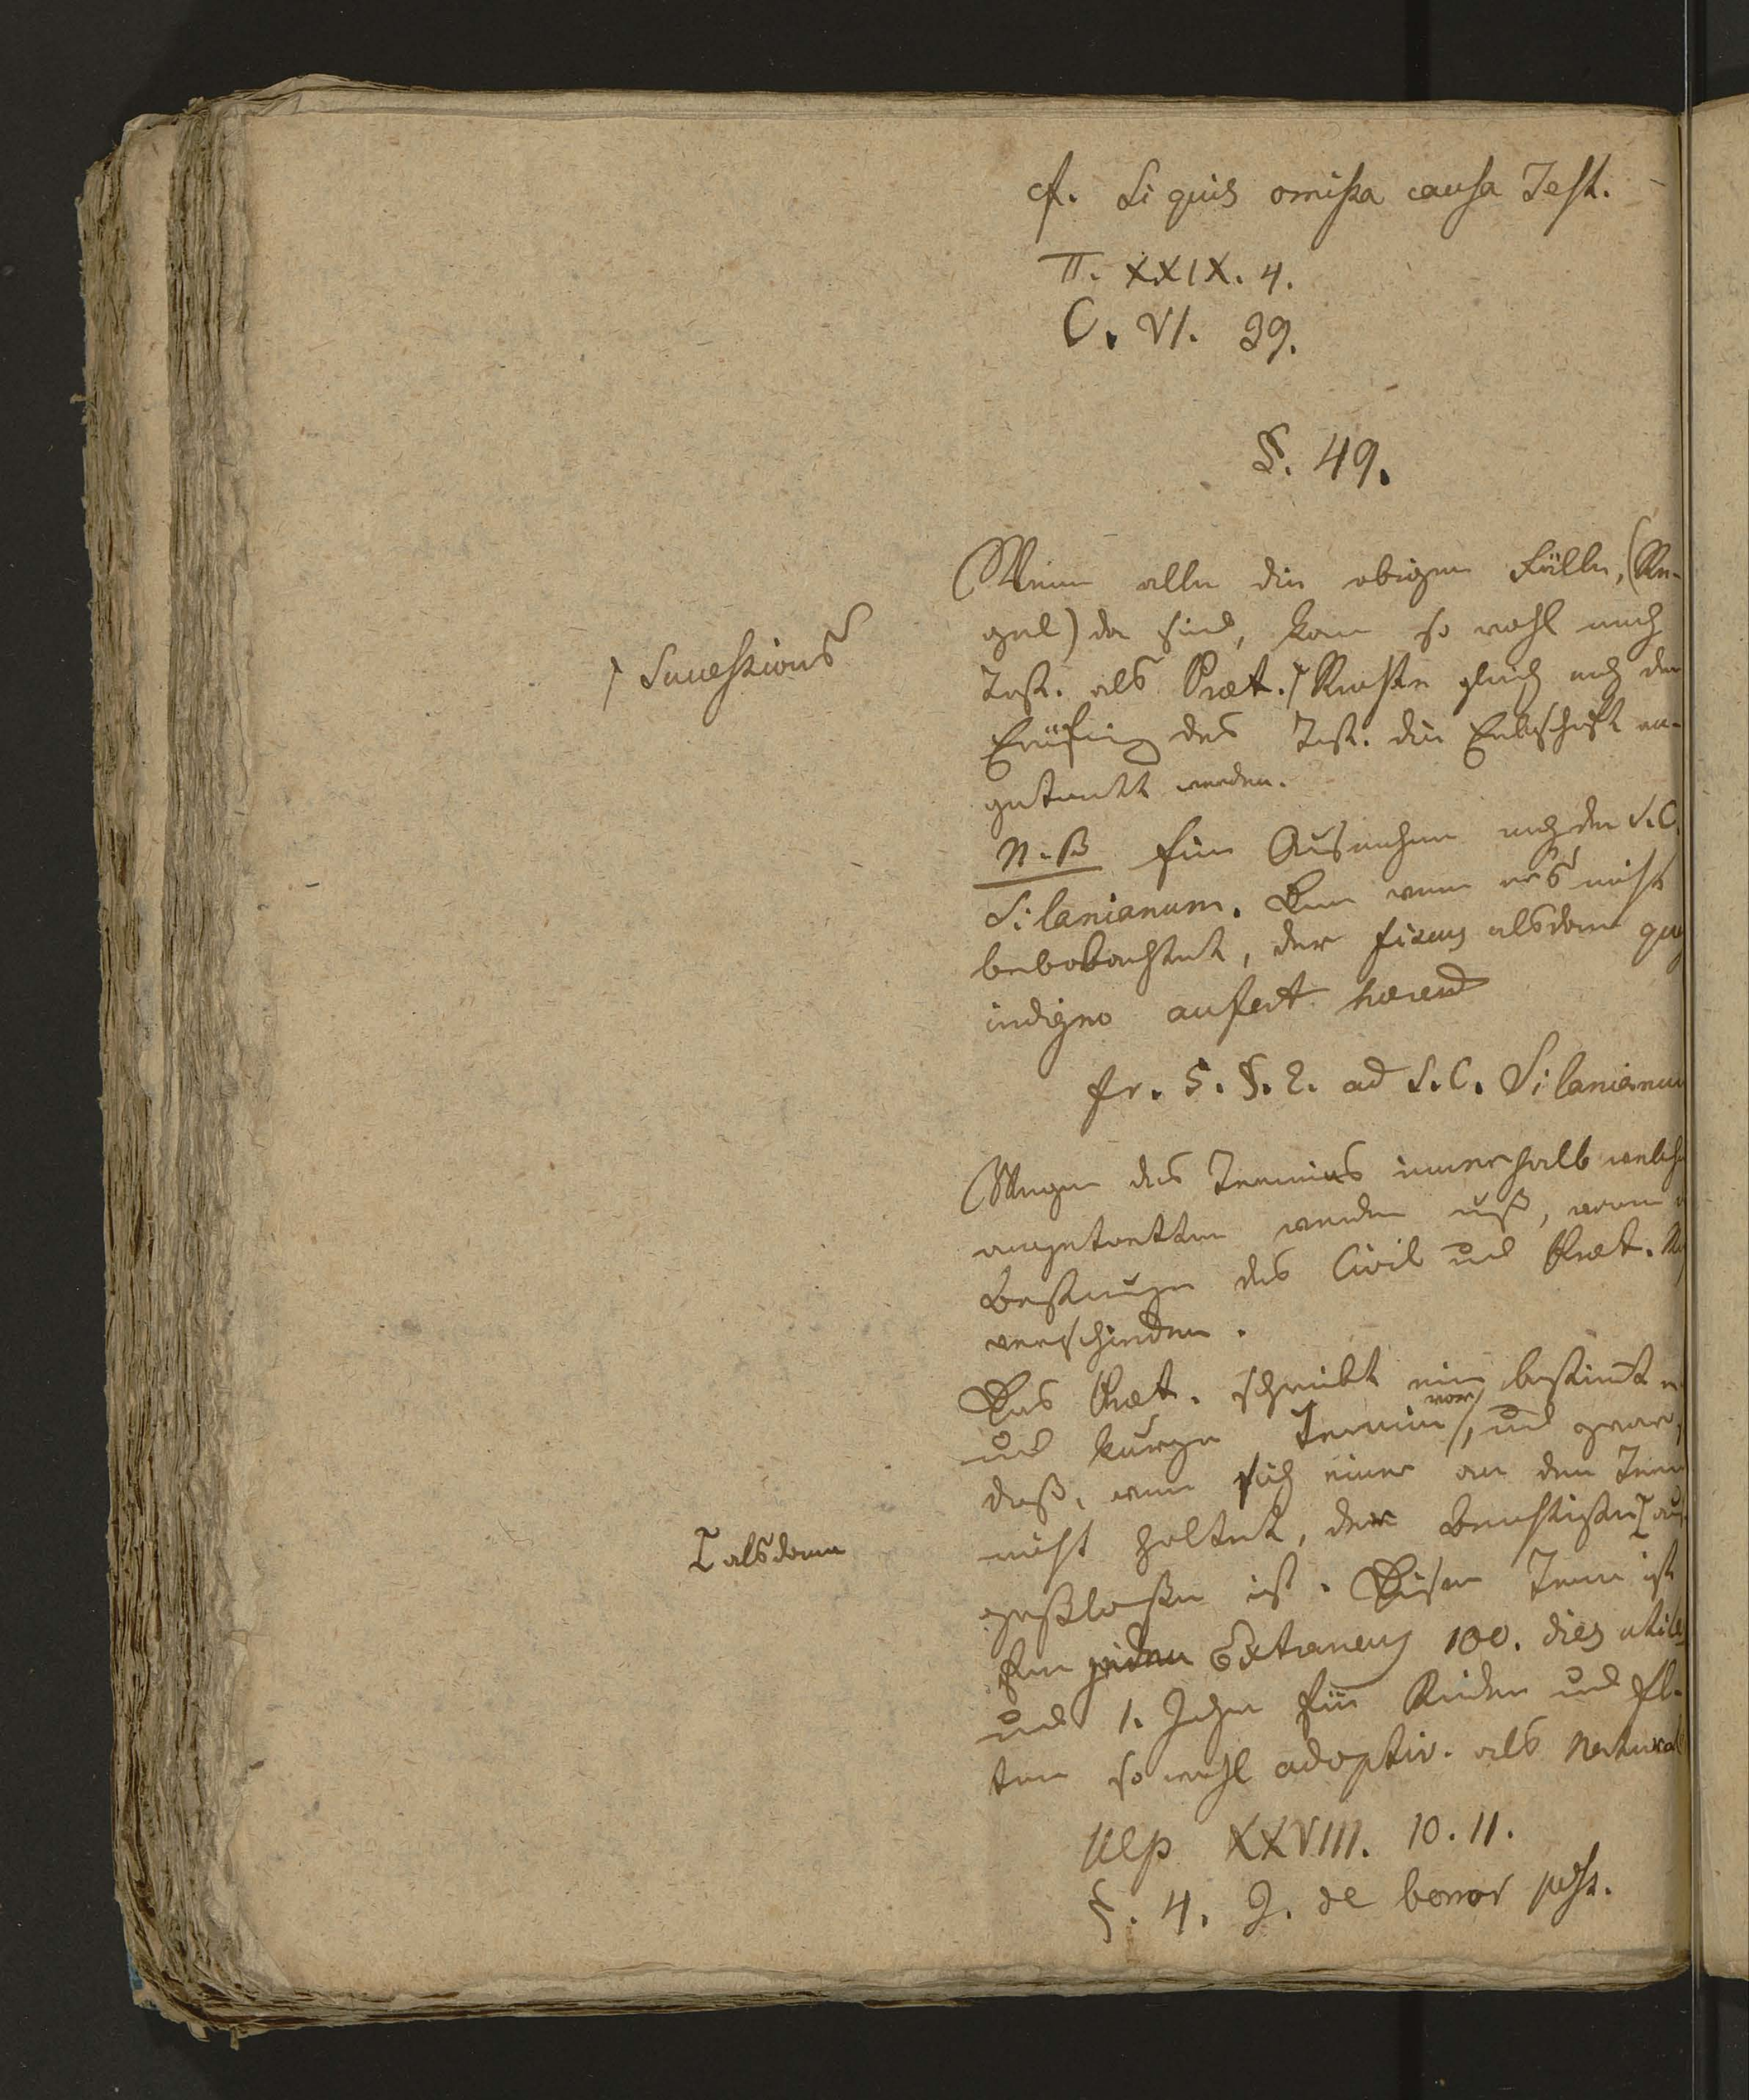 cf. Si quis omißa causa Test.
Π. XXIX. 4.
C. VI. 39.
§. 49.
Wenn alle die obigen Fälle, (Re-
gel) da sind, kan so wohl nach
Test. als Præt. ⌈ Rechte gleich nach der
⌈ Successions
Eröfnung des Test. die Erbschaft an-
getrett werden.
N.B eine Ausnahme nach dem S.C.
Silanianum. Den wenn er's nicht
beobachtet, der fiscus alsdann qua
indigno aufert hæred
fr. 5. §. 2. ad S.C. Silanianum
Wegen des Termins innerhalb welcher
angetretten werden muß, waren
Bestimungen des Civil und Præt.
verschieden.
Das Præt. schreibt eine bestimte
und kurze Termin vor, und zwar,
daß, wenn sich einer an den Term
nicht haltet, der ⌈ aus
⌈ alsdann
geschlossen ist. Dieser Termin ist
für jeden Extraneus 100. dies utiles
und 1. Jahr für Kinder und El-
tern sowohl adoptiv. als Natural
Ulp XXVIII. 10. 11.
§. 4. J. de bonor poss.